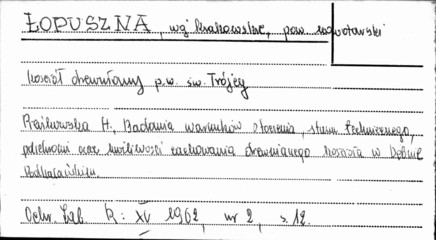 ŁOPUSZNA, wój. krakowskie, pow. nowotarski
kościół drewniany p.w. św. Trójcy
Rajkowska H., Badania warunków otoczenia, stanu technicznego,
oraz możliwości zachowania drewnianego kościoła w Dębnie
Podhalańskim.
Ochr. Zab. R: XV 1962, nr 2, s. 12.